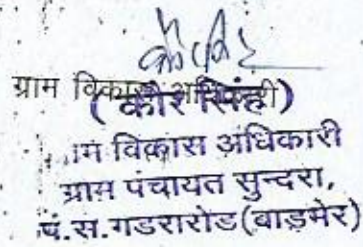 ग्राम विकास अधिकारी
(कौर सिंह)
ाम विकास अधिकारी
ग्राम पंचायत सुन्दरा,
पं.स.गडरारोड(बाड़मेर)